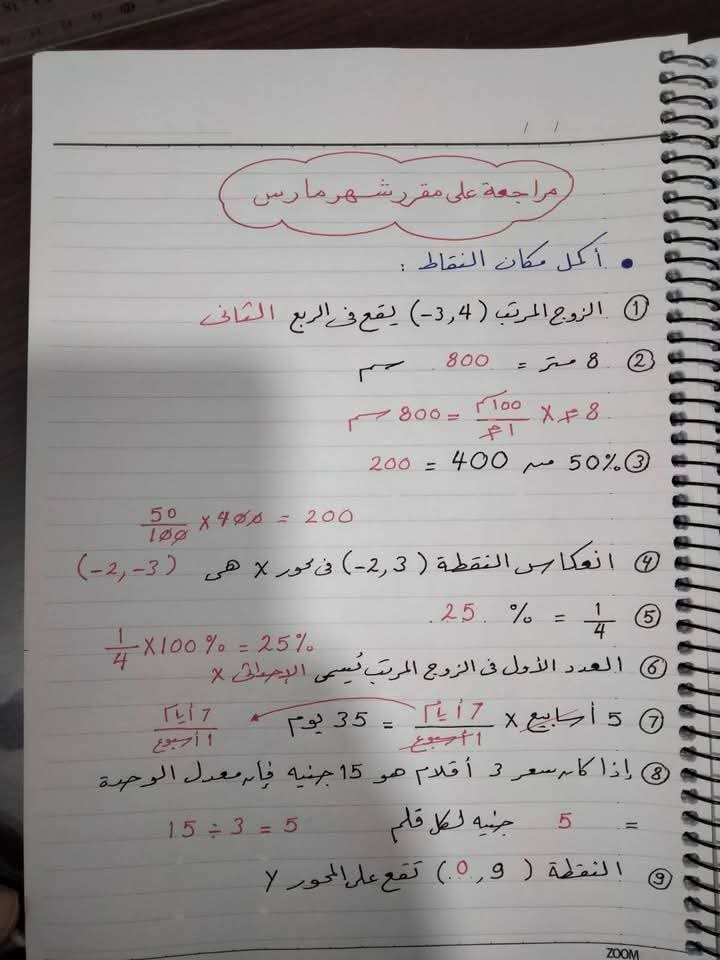 / /
مراجعة على مقرر شهر مارس
• أكمل مكان النقاط :
① الزوج المرتب (-3,4) يقع فى الربع الثانى
② 8 متر = 800 سم
8 م × 100سم/1م = 800 سم
③ 50% من 400 = 200
50/100 × 400 = 200
④ انعكاس النقطة (-2,3) فى محور x هى (-2,-3)
⑤ 1/4 = % 25
1/4 × 100% = 25%
⑥ العدد الأول فى الزوج المرتب يُسمى الإحداثى x
⑦ 5 أسابيع × 7 أيام/1 أسبوع = 35 يوم 7 أيام/1 أسبوع
⑧ إذا كان سعر 3 أقلام هو 15 جنيه فإن معدل الوحدة
= 5 جنيه لكل قلم 15 ÷ 3 = 5
⑨ النقطة (0,9) تقع على المحور y
ZOOM